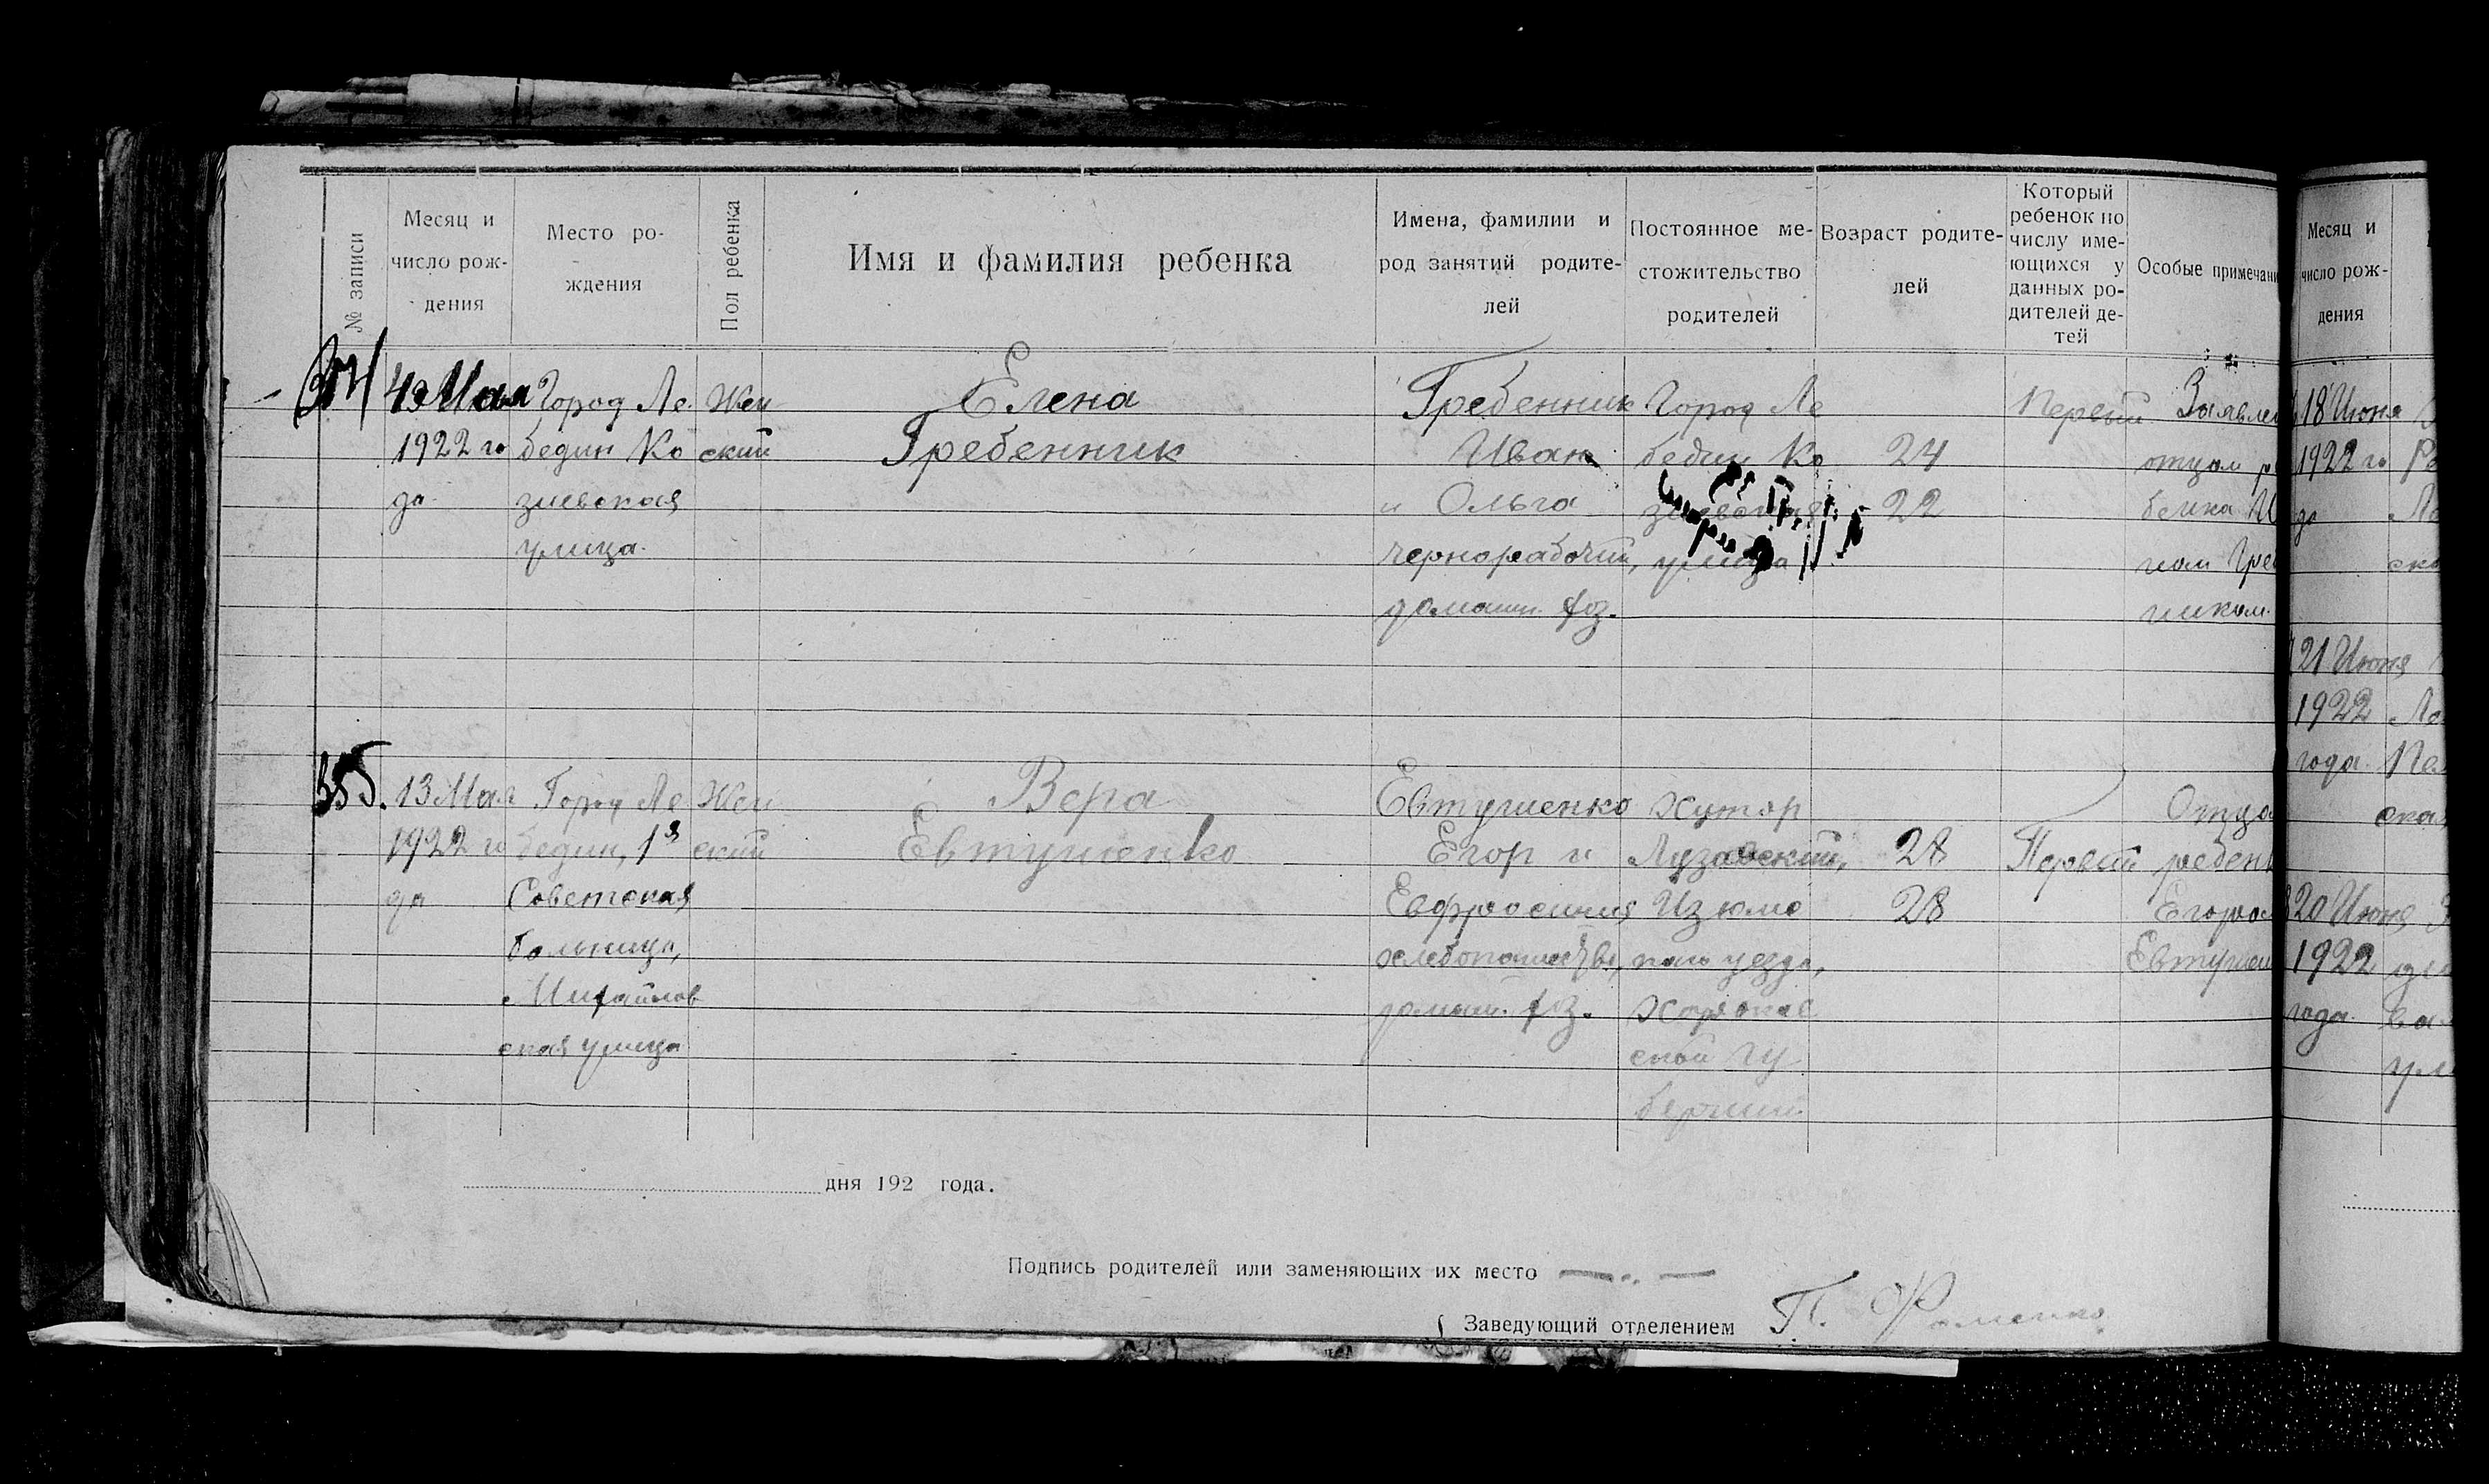 № записи
Месяц и
число рож-
дения
Место ро-
ждения
Пол ребенка
Имя и фамилия ребенка
Имена, фамилии и
род занятий родите-
лей
Постоянное ме-
стожительство
родителей
Возраст родите-
лей
Который
ребенок по
числу име-
ющихся у
данных ро-
дителей де-
тей
Особые примечани
Мая
1922 го
да
Город Ле
бедин Ко
зиевская
улица.
Жен
ский
Елена
Гребенник
Гребенник
Иван
и Ольга
чернорабочий,
домашн. хоз.
Город Ле
бедин Ко
зиевская
улица
24
22
Первый
Заявлен
отцом р
бенка И
ном Гре
ником.
355.
13 Мая
1922 го
да
Город Ле
бедин, 1я
Советская
больница,
Михайлов
ская улица
Жен
ский
Вера
Евтушенко
Евтушенко
Егор и
Евфросиния
хлебопашество,
домашн. хоз.
Хутор
Изюмс
кого уезда,
Харьков
ской гу
бернии
28
28
Первый
Отцом
ребенк
Егором
Евтушен
дня 192 года.
Подпись родителей или заменяющих их место
Заведующий отделением П. Фоменко
Месяц и
число рож-
дения
18 Июня
1922 го
да
21 Июня
1922
года.
20 Июня
1922
года.